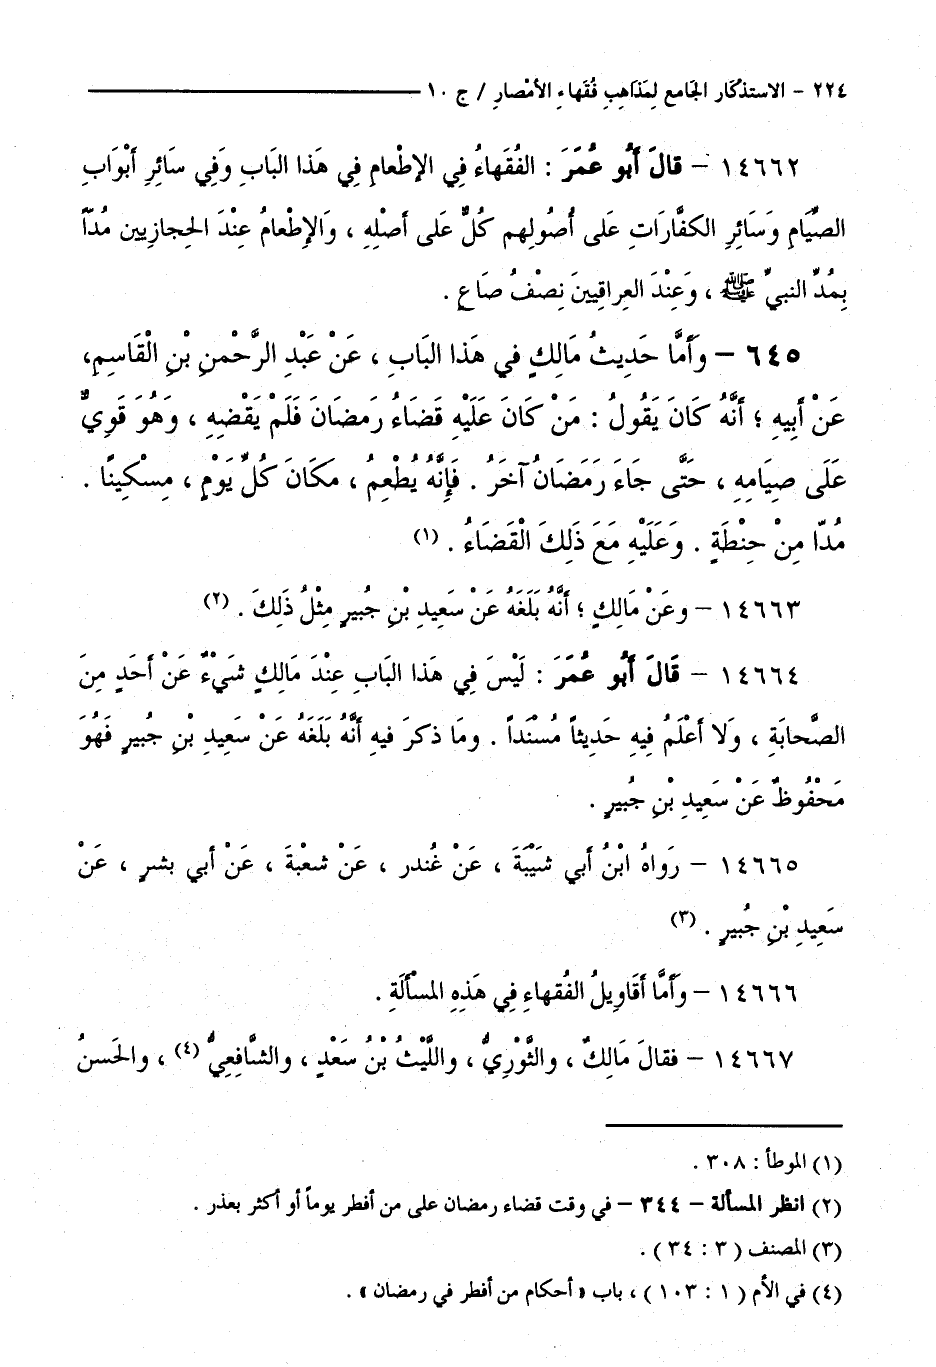 ٢٢٤ - الاستذكار الجامع لِمَذاهِبِ فُقَهاءِ الأمْصارِ / ج ١٠
١٤٦٦٢ – قالَ أَبُو عُمَرَ : الفُقَهاءُ فِي الإطْعامِ فِي هَذا البَابِ وَفِي سَائِرِ أَبْوَابِ
الصِّيَامِ وَسَائِرِ الكفَّارَاتِ عَلى أُصُولِهم كُلٌّ عَلى أصْلِهِ ، وَالإِطْعامُ عِنْدَ الحِجازِيين مُدّاً
بِمُدِّ النبيِّ ﷺ ، وَعِنْدَ العِراقِيينَ نِصْفُ صَاعٍ .
٦٤٥ – وَأَمَّا حَدِيثُ مَالِكٍ في هَذا البَابِ ، عَنْ عَبْدِ الرَّحْمنِ بْنِ الْقَاسِمِ،
عَنْ أَبِيهِ ؛ أَنَّهُ كَانَ يَقُولُ : مَنْ كَانَ عَلَيْهِ قَضَاءُ رَمَضَانَ فَلَمْ يَقْضِهِ ، وَهُوَ قَوِيٌّ
عَلَى صِيَامِهِ ، حَتَّى جَاءَ رَمَضَانُ آخَرُ . فَإِنَّهُ يُطْعِمُ ، مَكَانَ كُلِّ يَوْمٍ ، مِسْكِينًا .
مُدّا مِنْ حِنْطَةٍ . وَعَلَيْهِ مَعَ ذَلِكَ الْقَضَاءُ . (١)
١٤٦٦٣ – وعَنْ مَالِكٍ ؛ أَنَّهُ بَلَغَهُ عَنْ سَعِيدِ بْنِ جُبيرٍ مِثْلُ ذَلِكَ . (٢)
١٤٦٦٤ – قَالَ أَبُو عُمَرَ : لَيْسَ فِي هَذا البَابِ عِنْدَ مَالِكٍ شَيْءٌ عَنْ أَحَدٍ مِنَ
الصَّحابَةِ ، وَلا أَعْلَمُ فِيهِ حَدِيثاً مُسْنَداً . ومَا ذكرَ فيهِ أَنَّهُ بَلَغَهُ عَنْ سَعِيدِ بْنِ جُبيرٍ فَهُوَ
مَحْفُوظٌ عَنْ سَعِيدِ بْنِ جُبيرٍ .
١٤٦٦٥ – رَواهُ ابْنُ أبي شَيْبَةَ ، عَنْ غُندر ، عَنْ شعْبةَ ، عَنْ أبي بشرٍ ، عَنْ
سَعِيدِ بْنِ جُبيرٍ . (٣)
١٤٦٦٦ – وَأَمَّا أقَاوِيلُ الفُقهاءِ فِي هَذِهِ المسْأَلَةِ .
١٤٦٦٧ – فقالَ مَالِكٌ ، والثَّوْرِيُّ ، واللَّيْثُ بْنُ سَعْدٍ ، والشَّافِعِيُّ (٤) ، والحَسنُ
(١) الموطأ : ٣٠٨ .
(٢) انظر المسألة – ٣٤٤ – في وقت قضاء رمضان على من أفطر يوماً أو أكثر بعذر .
(٣) المصنف ( ٣ : ٣٤ ) .
(٤) في الأم ( ١ : ١٠٣ ) ، باب « أحكام من أفطر في رمضان » .